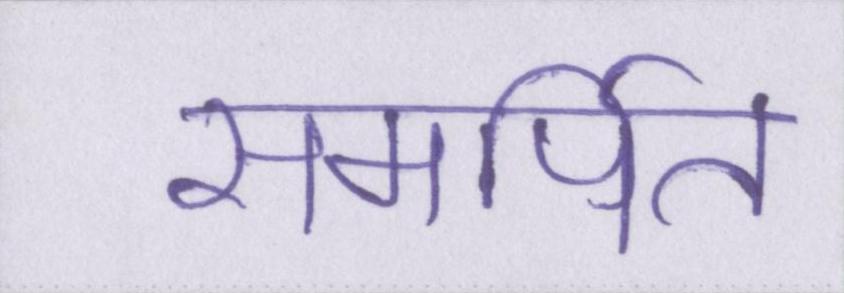 समर्पित